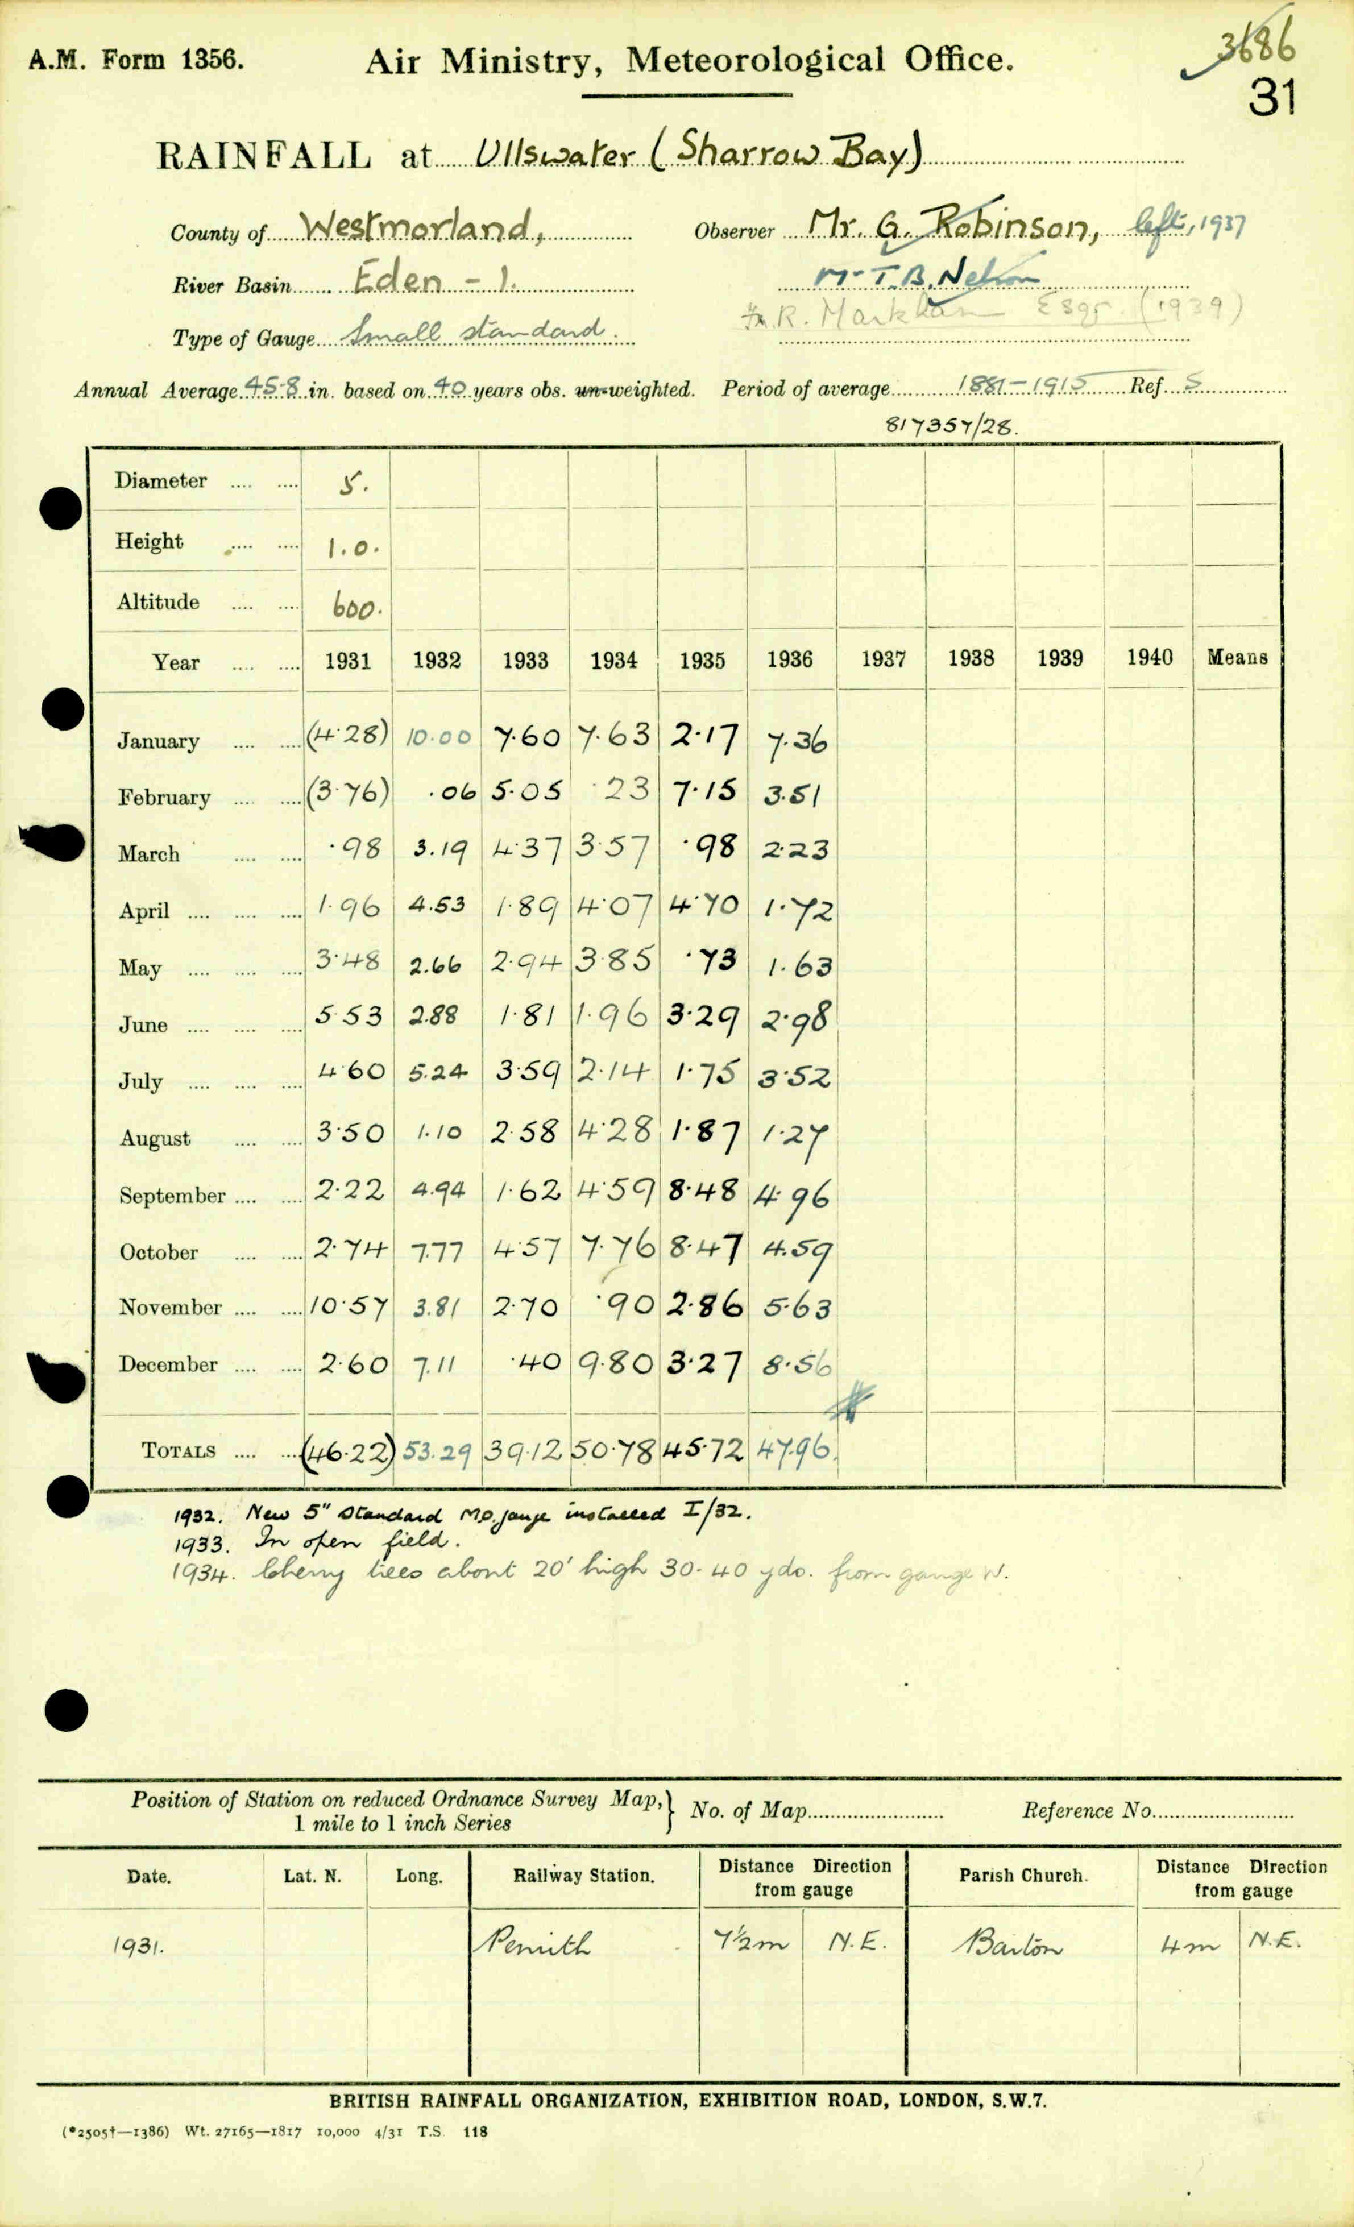 A.M. Form 1356.
Air Ministry, Meteorological Office.
3686
31
RAINFALL at Ullswater (Sharrow Bay)
County of Westmorland,
Observer Mr. G. Robinson, left, 1937
River Basin Eden - 1.
Mr T.B. Nelson
Type of Gauge Small standard.
R. Markham Esqr. (1939)
Annual Average 45.8 in. based on 40 years obs. un-weighted. Period of average 1881-1915 Ref. S
817357/28.
Diameter .... .... 5.
Height .... .... 1.0.
Altitude .... .... 600.
Year .... .... 1931 1932 1933 1934 1935 1936 1937 1938 1939 1940 Means
January .... .... (4.28) 10.00 7.60 7.63 2.17 7.36
February .... .... (3.76) .06 5.05 .23 7.15 3.51
March .... .... .98 3.19 4.37 3.57 .98 2.23
April .... .... .... 1.96 4.53 1.89 4.07 4.70 1.72
May .... .... .... 3.48 2.66 2.94 3.85 .73 1.63
June .... .... .... 5.53 2.88 1.81 1.96 3.29 2.98
July .... .... .... 4.60 5.24 3.59 2.14 1.75 3.52
August .... .... 3.50 1.10 2.58 4.28 1.87 1.27
September .... .... 2.22 4.94 1.62 4.59 8.48 4.96
October .... .... 2.74 7.77 4.57 7.76 8.47 4.59
November .... .... 10.57 3.81 2.70 .90 2.86 5.63
December .... .... 2.60 7.11 .40 9.80 3.27 8.56
TOTALS .... .... (46.22) 53.29 39.12 50.78 45.72 47.96
1932. New 5" Standard M.O. gauge installed I/32.
1933. In open field.
1934. Cherry trees about 20' high 30-40 yds. from gauge W.
Position of Station on reduced Ordnance Survey Map,} No. of Map Reference No.
1 mile to 1 inch Series
Date. Lat. N. Long. Railway Station. Distance Direction from gauge Parish Church. Distance Direction from gauge
1931. Penrith 7½m N.E. Barton 4m N.E.
BRITISH RAINFALL ORGANIZATION, EXHIBITION ROAD, LONDON, S.W.7.
(*2505†—1386) Wt. 27165—1817 10,000 4/31 T.S. 118